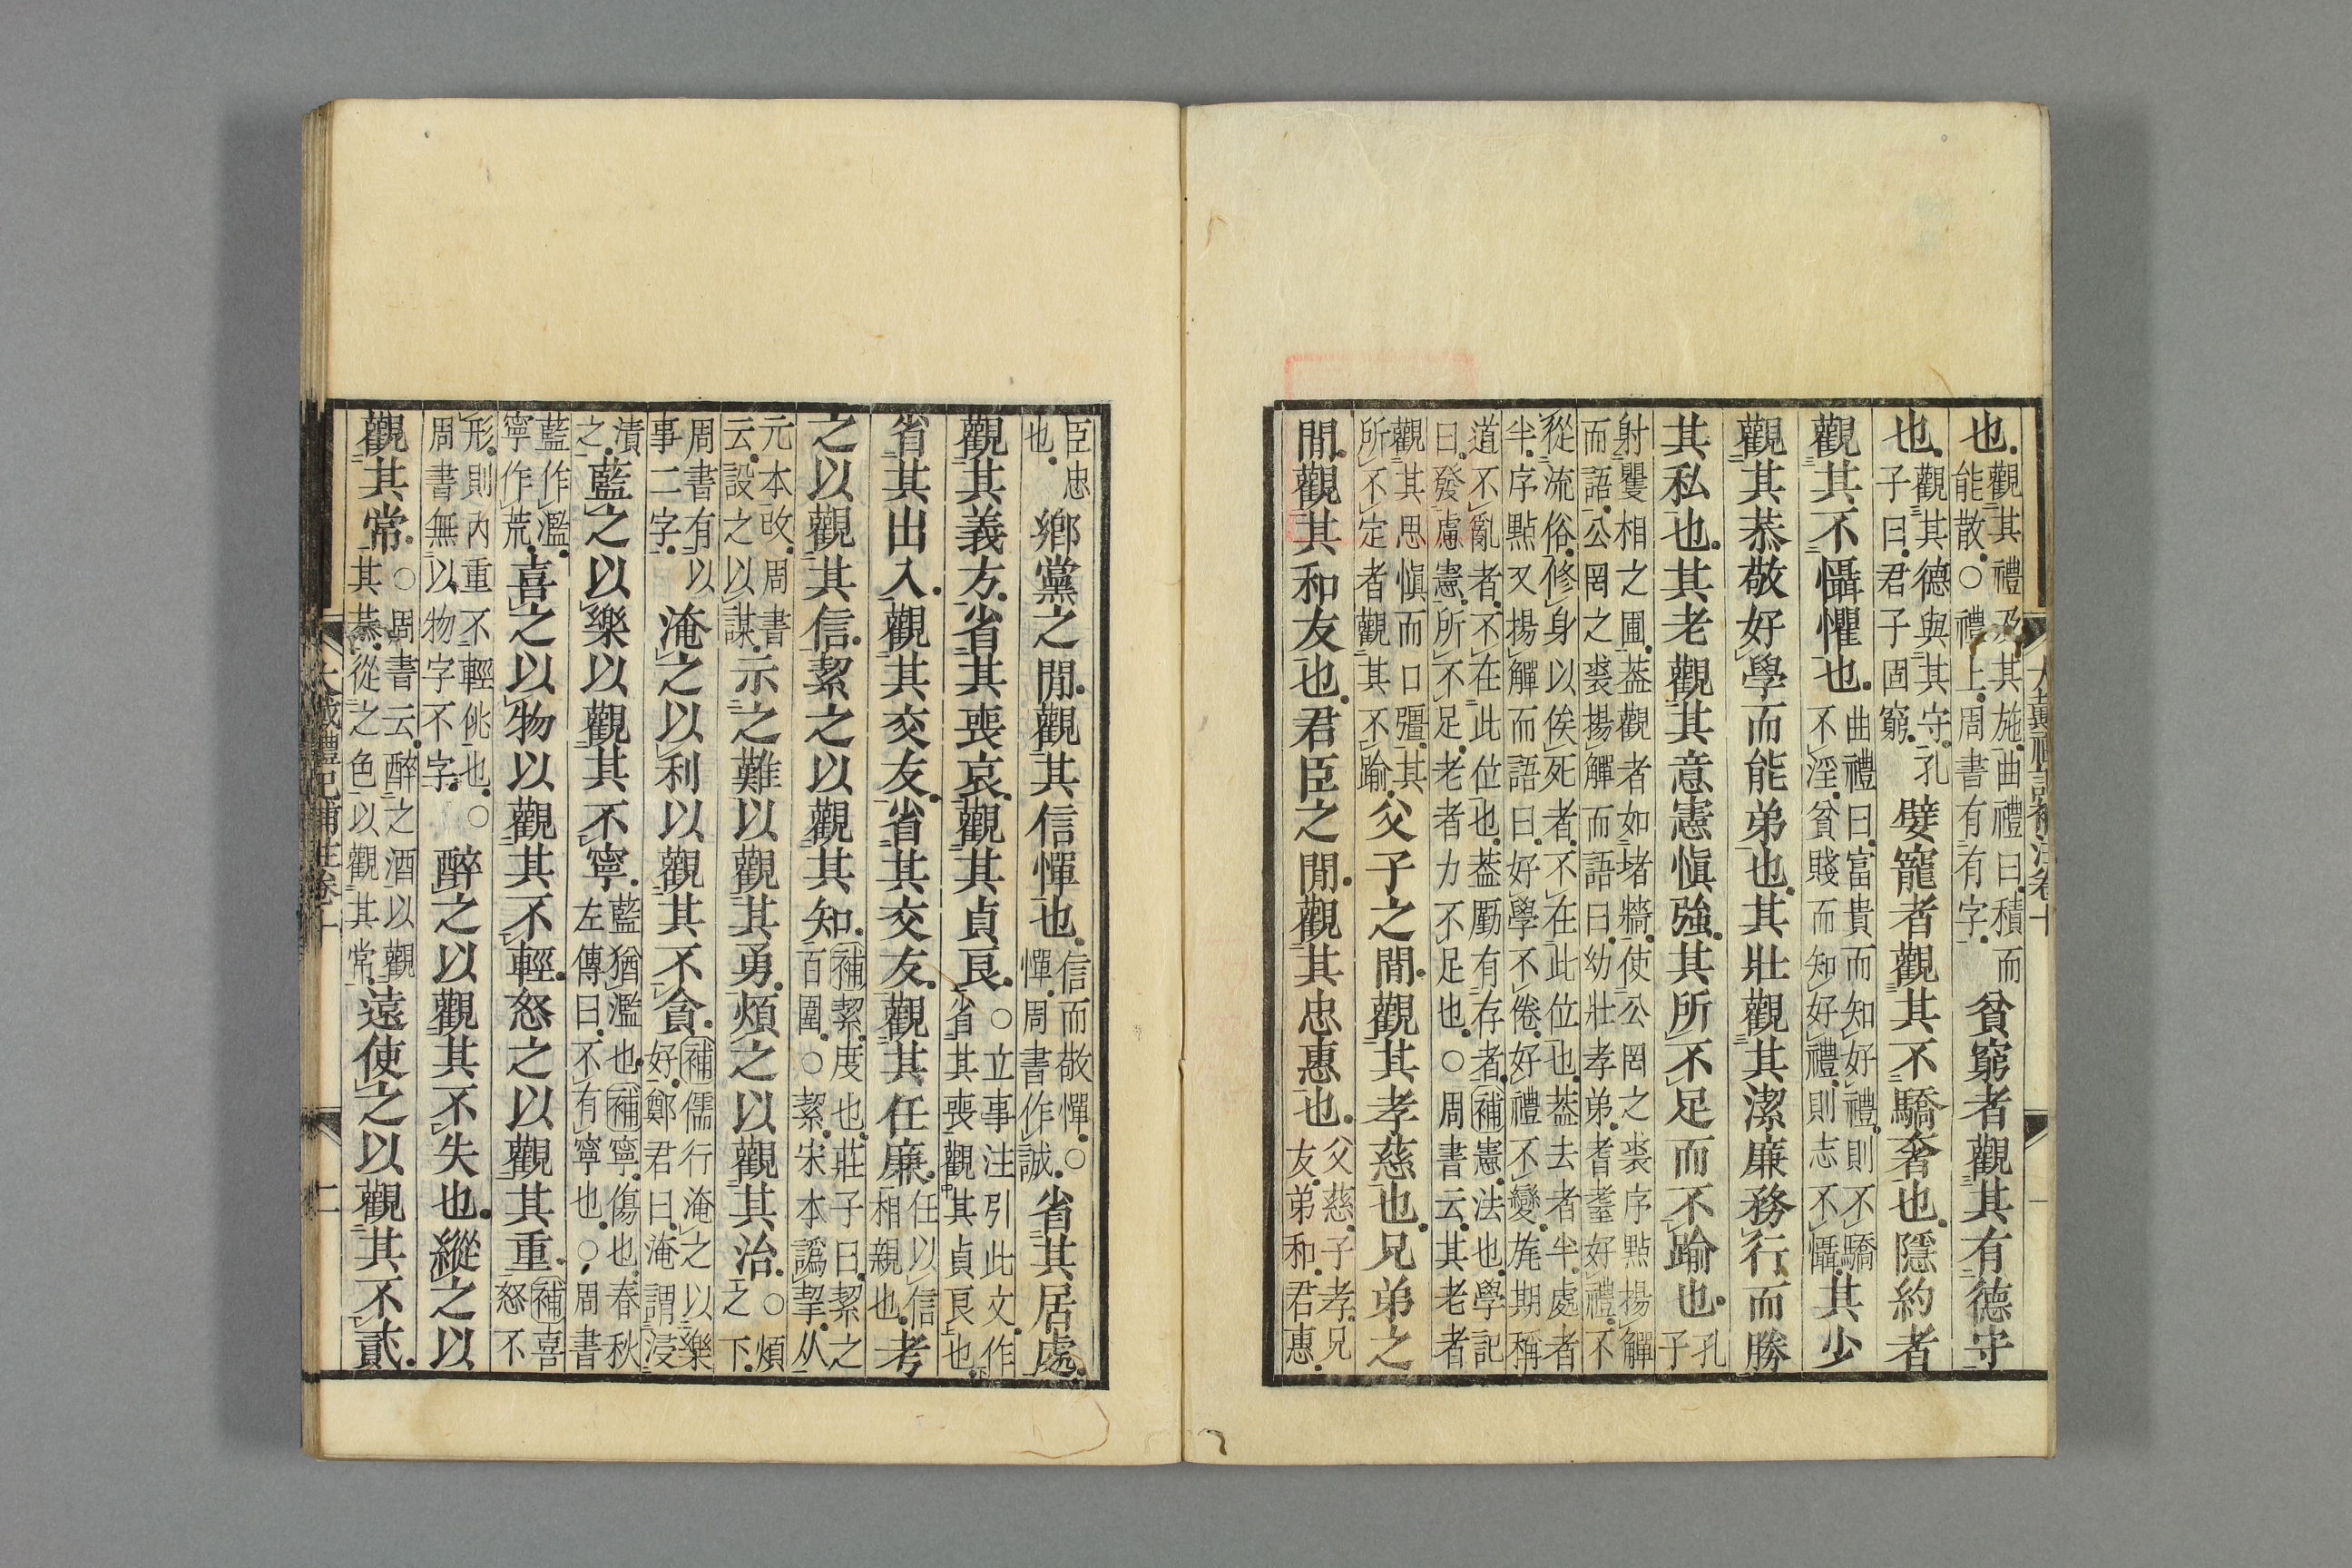 也。觀其禮及其施。曲禮曰。積而
能散。○禮上。周書有有字。貧窮者觀其有德守
也。觀其德與其守。孔
子曰。君子固窮。嬖寵者觀其不驕奢也。隱約者
觀其不懾懼也。曲禮曰。富貴而知好禮。則不驕
不淫。貧賤而知好禮。則志不懾。其少
觀其恭敬好學而能弟也。其壯觀其潔廉務行而勝
其私也。其老觀其意憲愼強。其所不足而不踰也。孔
子
射矍相之圃。蓋觀者如堵牆。使公罔之裘序點揚觶
而語。公罔之裘揚觶而語曰。幼壯孝弟。耆耋好禮。不
從流俗。修身以俟死者。不在此位也。蓋去者半。處者
半。序點又揚觶而語曰。好學不倦。好禮不變。旄期稱
道不亂者。不在此位也。蓋勵有存者。補憲。法也。學記
曰。發慮憲。所不足。老者力不足也。○周書云。其老者
觀其思愼而口彊。其
所不定者觀其不踰。父子之間。觀其孝慈也。兄弟之
間。觀其和友也。君臣之間。觀其忠惠也。父慈。子孝。兄
友。弟和。君惠。
大戴禮記補注卷十 一
臣忠
也。鄉黨之間。觀其信憚也。信而敬憚。○
憚。周書作誠。省其居處。
觀其義方。省其喪哀。觀其貞良。○立事注引此文。作
省其喪觀其貞良也。
省其出入。觀其交友。省其交友。觀其任廉。任以信
相親也。考
之以觀其信。絜之以觀其知。補絜。度也。莊子曰。絜之
百圍。○絜。宋本譌挈。从
元本改。周書
云。設之以謀。示之難以觀其勇。煩之以觀其治。○煩
之下。
周書有以
事二字。淹之以利以觀其不貪。補儒行淹之以樂
好。鄭君曰。淹謂浸
漬
之。藍之以樂以觀其不寧。藍猶濫也。補寧。傷也。春秋
左傳曰。不有寧也。○周書
藍作濫。
寧作荒。喜之以物以觀其不輕。怒之以觀其重。補喜
怒不
形。則內重不輕佻也。○
周書無以物字不字。醉之以觀其不失也。縱之以
觀其常。○周書云。醉之酒以觀
其恭。從之色以觀其常。遠使之以觀其不貳。
大戴禮記補注卷十 二